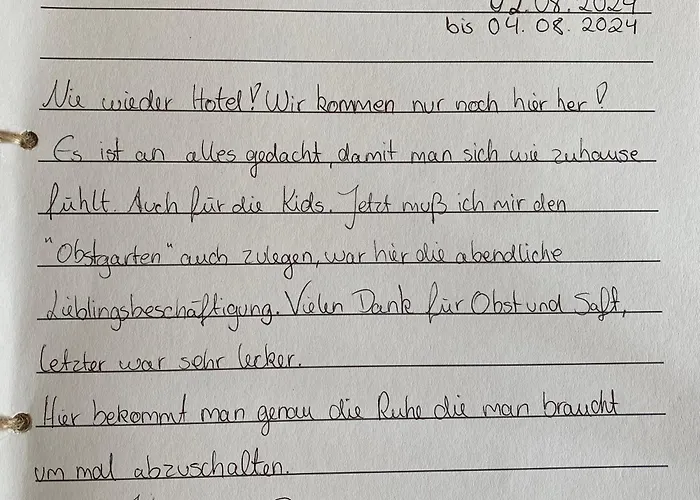 02.08.2024
bis 04.08.2024
Nie wieder Hotel! Wir kommen nur noch hier her!
Es ist an alles gedacht, damit man sich wie zuhause
fühlt. Auch für die Kids. Jetzt muß ich mir den
"Obstgarten" auch zulegen, war hier die abendliche
Lieblingsbeschäftigung. Vielen Dank für Obst und Saft,
letzter war sehr lecker.
Hier bekommt man genau die Ruhe die man braucht
um mal abzuschalten.